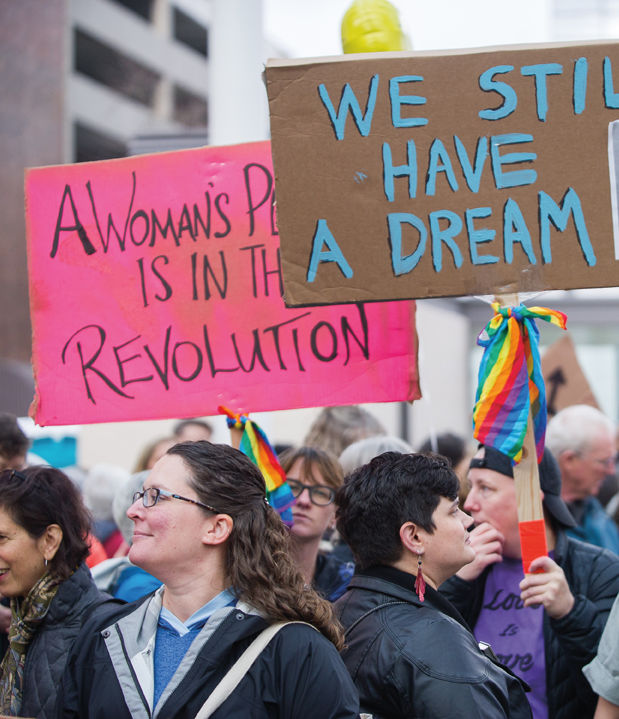 A WOMAN'S PL
IS IN TH
REVOLUTION
WE STIL
HAVE
A DREAM
Is